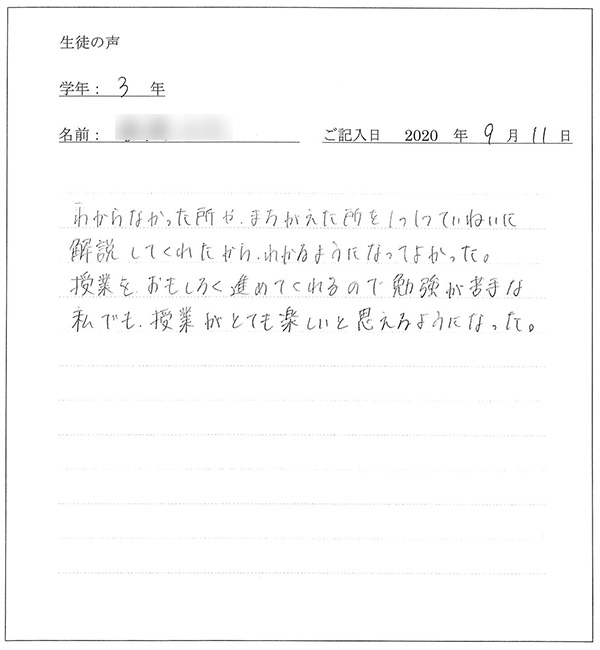 生徒の声
学年： 3 年
名前：
ご記入日 2020 年 9 月 11 日
わからなかった所や、まちがえた所を1つ1つていねいに
解説してくれたから、わかるようになってよかった。
授業を、おもしろく進めてくれるので勉強が苦手な
私でも、授業がとても楽しいと思えるようになった。